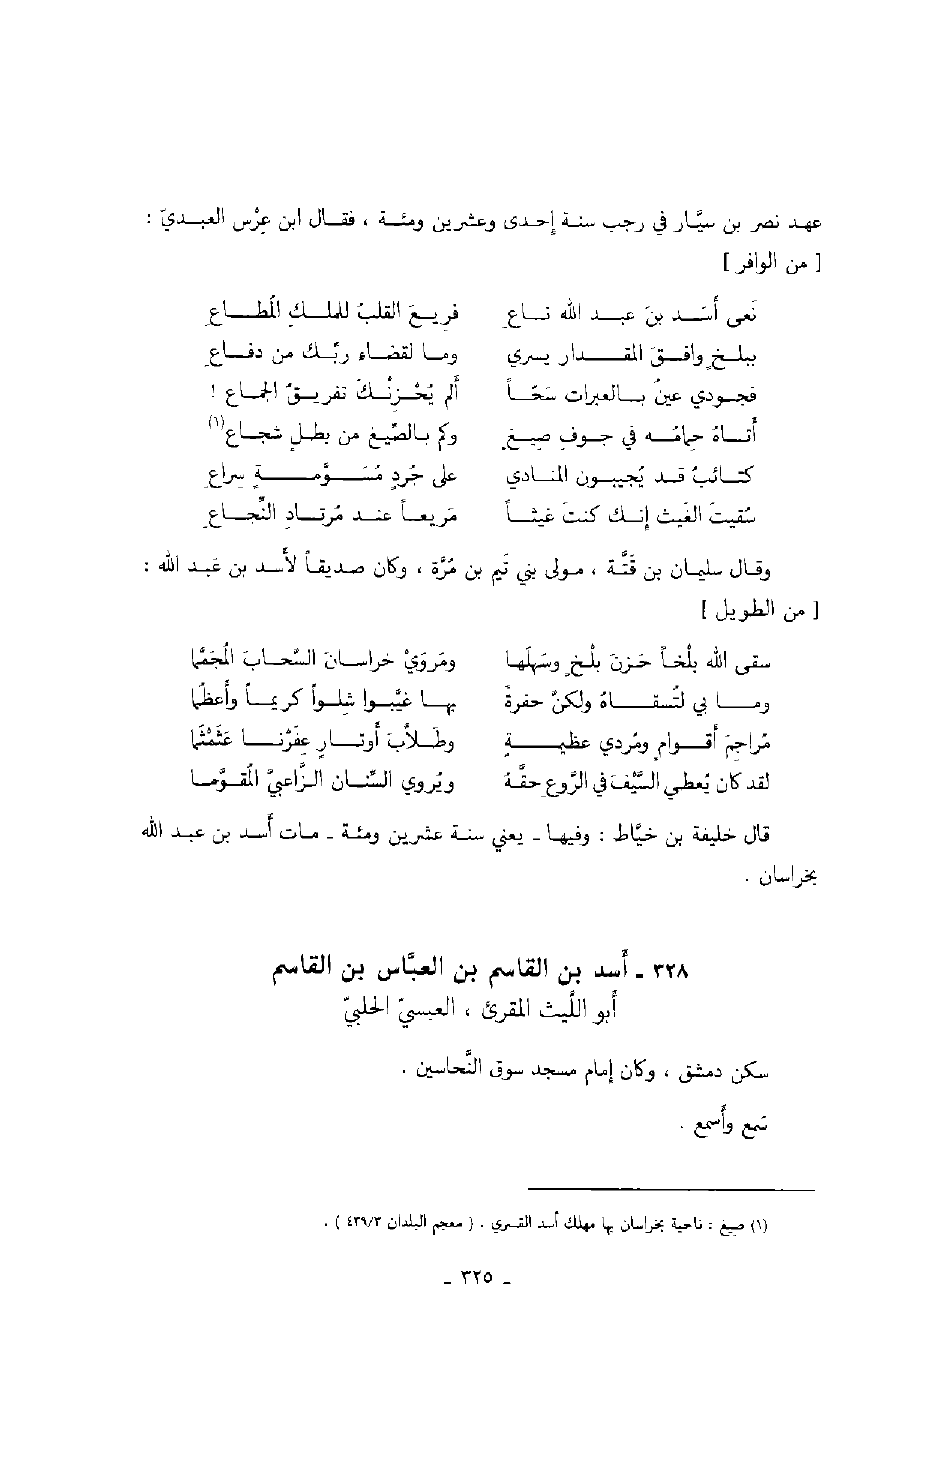 عهد نصر بن سيَّار في رجب سنة إحدى وعشرين ومئة ، فقال ابن عِرْس العبديّ :
[ من الوافر ]
نَعى أسَد بنَ عبد الله ناعٍ فريعَ القلبُ للملكِ المُطاعِ
ببلخٍ وافقَ المقدار يسري وما لقضاء ربّك من دفاعِ
فجودي عينُ بالعبرات سَحّاً ألم يُحْزِنْكَ تفريقُ الجماع !
أتاهُ حِمامُه في جوفِ صيغٍ وكم بالصِّيغ من بطلٍ شجاع(١)
كتائبُ قد يُجيبون المنادي على جُردٍ مُسَوَّمةٍ سِراعِ
سُقيتَ الغيثَ إنك كنتَ غيثاً مَريعاً عند مُرتادِ النُّجاعِ
وقال سليمان بن قَتَّة ، مولى بني تَيم بن مُرَّة ، وكان صديقاً لأسد بن عَبد الله :
[ من الطويل ]
سقى الله بلْخاً حَزنَ بلْخٍ وسَهلَها ومَروَيْ خراسان السَّحابَ المُجَمَّما
وما بي لتُسقاهُ ولكنَّ حفرةً بها غيَّبوا شِلواً كريماً وأعظُما
مُراجِمَ أقوامٍ ومُردي عظيمةٍ وطلاّبَ أوتارٍ عِفَرْنا عَثَمْثَما
لقد كان يُعطي السَّيفَ في الرَّوعِ حقَّهُ ويُروي السِّنان الزَّاعبيَّ المُقوَّما
قال خليفة بن خيَّاط : وفيها ـ يعني سنة عشرين ومئة ـ مات أسد بن عبد الله
بخراسان .
٣٢٨ ـ أسد بن القاسم بن العبَّاس بن القاسم
أبو اللَّيث المقرئ ، العبسيّ الحلبيّ
سكن دمشق ، وكان إمام مسجد سوق النَّحاسين .
سَمع وأسمع .
(١) صيغ : ناحية بخراسان بها مهلك أسد القسري . ( معجم البلدان ٤٣٩/٣ ) .
ـ ٣٢٥ ـ